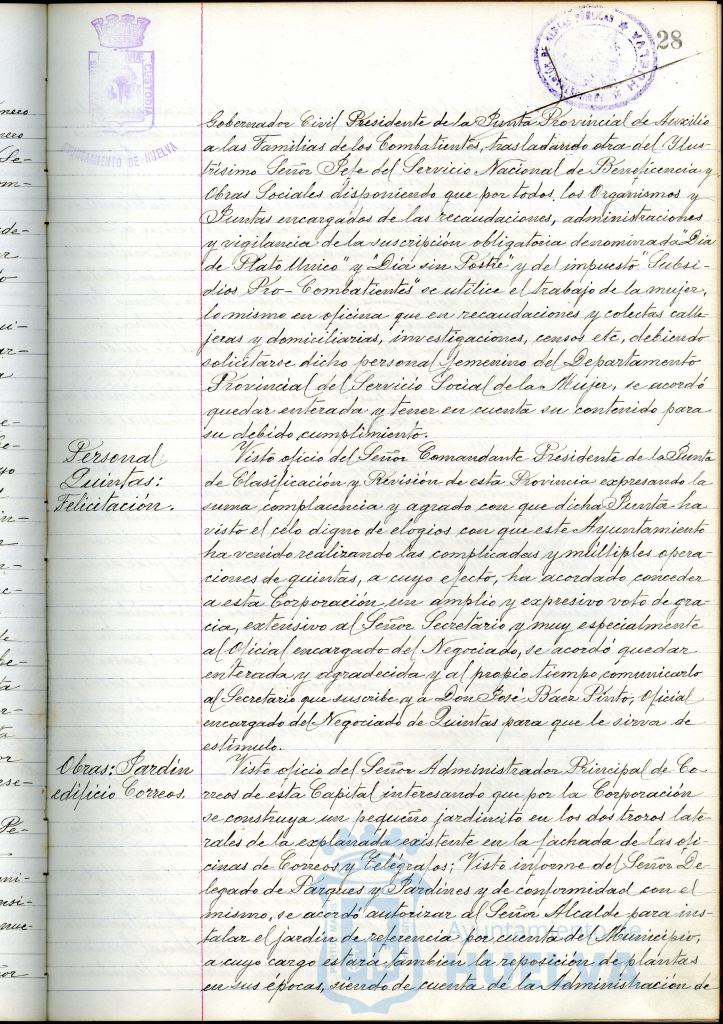 28
AYUNTAMIENTO DE HUELVA
CUSTODIA
Gobernador Civil Presidente de la Junta Provincial de Auxilio
a las Familias de los Combatientes, trasladando otra del Ylus-
trísimo Señor Jefe del Servicio Nacional de Beneficencia y
Obras Sociales disponiendo que por todos los Organismos y
Juntas encargados de las recaudaciones, administraciones
y vigilancia de la suscripción obligatoria denominada "Dia
de Plato Unico" y "Día sin Postre" y del impuesto "Subsi-
dios Pro-Combatientes" se utilice el trabajo de la mujer,
lo mismo en oficina que en recaudaciones y colectas calle-
jeras y domiciliarias, investigaciones, censos etc, debiendo
solicitarse dicho personal femenino del Departamento
Provincial del Servicio Social de la Mujer, se acordó
quedar enterada y tener en cuenta su contenido para
su debido cumplimiento.
Personal
Quintas:
Felicitación.
Visto oficio del Señor Comandante Presidente de la Junta
de Clasificación y Revisión de esta Provincia expresando la
suma complacencia y agrado con que dicha Junta ha
visto el celo digno de elogios con que este Ayuntamiento
ha venido realizando las complicadas y múltiples opera-
ciones de quintas, a cuyo efecto, ha acordado conceder
a esta Corporación un amplio y expresivo voto de gra-
cia, extensivo al Señor Secretario y muy especialmente
al Oficial encargado del Negociado, se acordó quedar
enterada y agradecida y al propio tiempo, comunicarlo
al Secretario que suscribe y a Don José Báez Pinto, Oficial
encargado del Negociado de Quintas para que le sirva de
estímulo.
Obras: Jardín
edificio Correos.
Visto oficio del Señor Administrador Principal de Co-
rreos de esta Capital interesando que por la Corporación
se construya un pequeño jardincito en los dos trozos late-
rales de la explanada existente en la fachada de las ofi-
cinas de Correos y Telégrafos; Visto informe del Señor De-
legado de Parques y Jardines y de conformidad con el
mismo, se acordó autorizar al Señor Alcalde para ins-
talar el jardín de referencia por cuenta del Municipio,
a cuyo cargo estará tambien la reposición de plantas
en sus epocas, siendo de cuenta de la Administración de
Ayuntamiento de
HUELVA